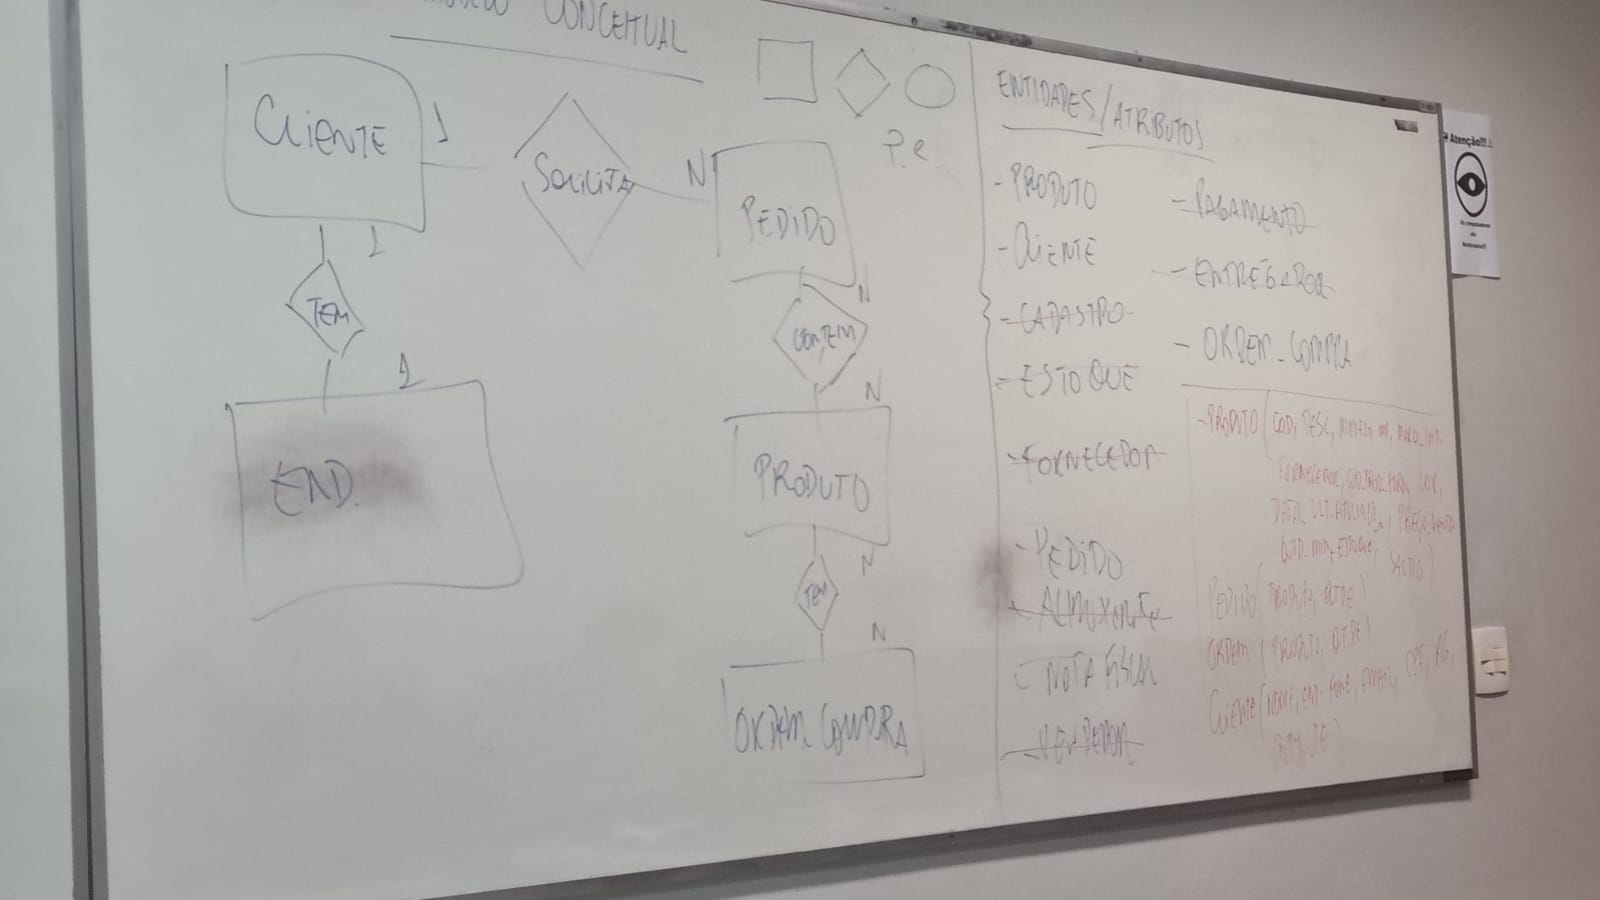 CONCEITUAL
CLIENTE
1
SOLICITA
N
PEDIDO
1
TEM
1
END.
N
CONTEM
N
PRODUTO
N
TEM
N
ORDEM_COMPRA
P.e.
ENTIDADES/ATRIBUTOS
- PRODUTO
- CLIENTE
- CADASTRO
- ESTOQUE
- FORNECEDOR
- PEDIDO
- ALMOXARIFE
- NOTA FISCAL
- VENDEDOR
- PAGAMENTO
- ENTREGADOR
- ORDEM_COMPRA
- PRODUTO (COD, DESC,
FORNECEDOR, COR,
DATA_ULT.
QTD_MIN_ESTOQUE, SALDO)
PEDIDO (PRODUTO, QTDE)
ORDEM (PRODUTO, QTDE)
CLIENTE (NOME, END, FONE, EMAIL, CPF, RG,
Atenção!!!